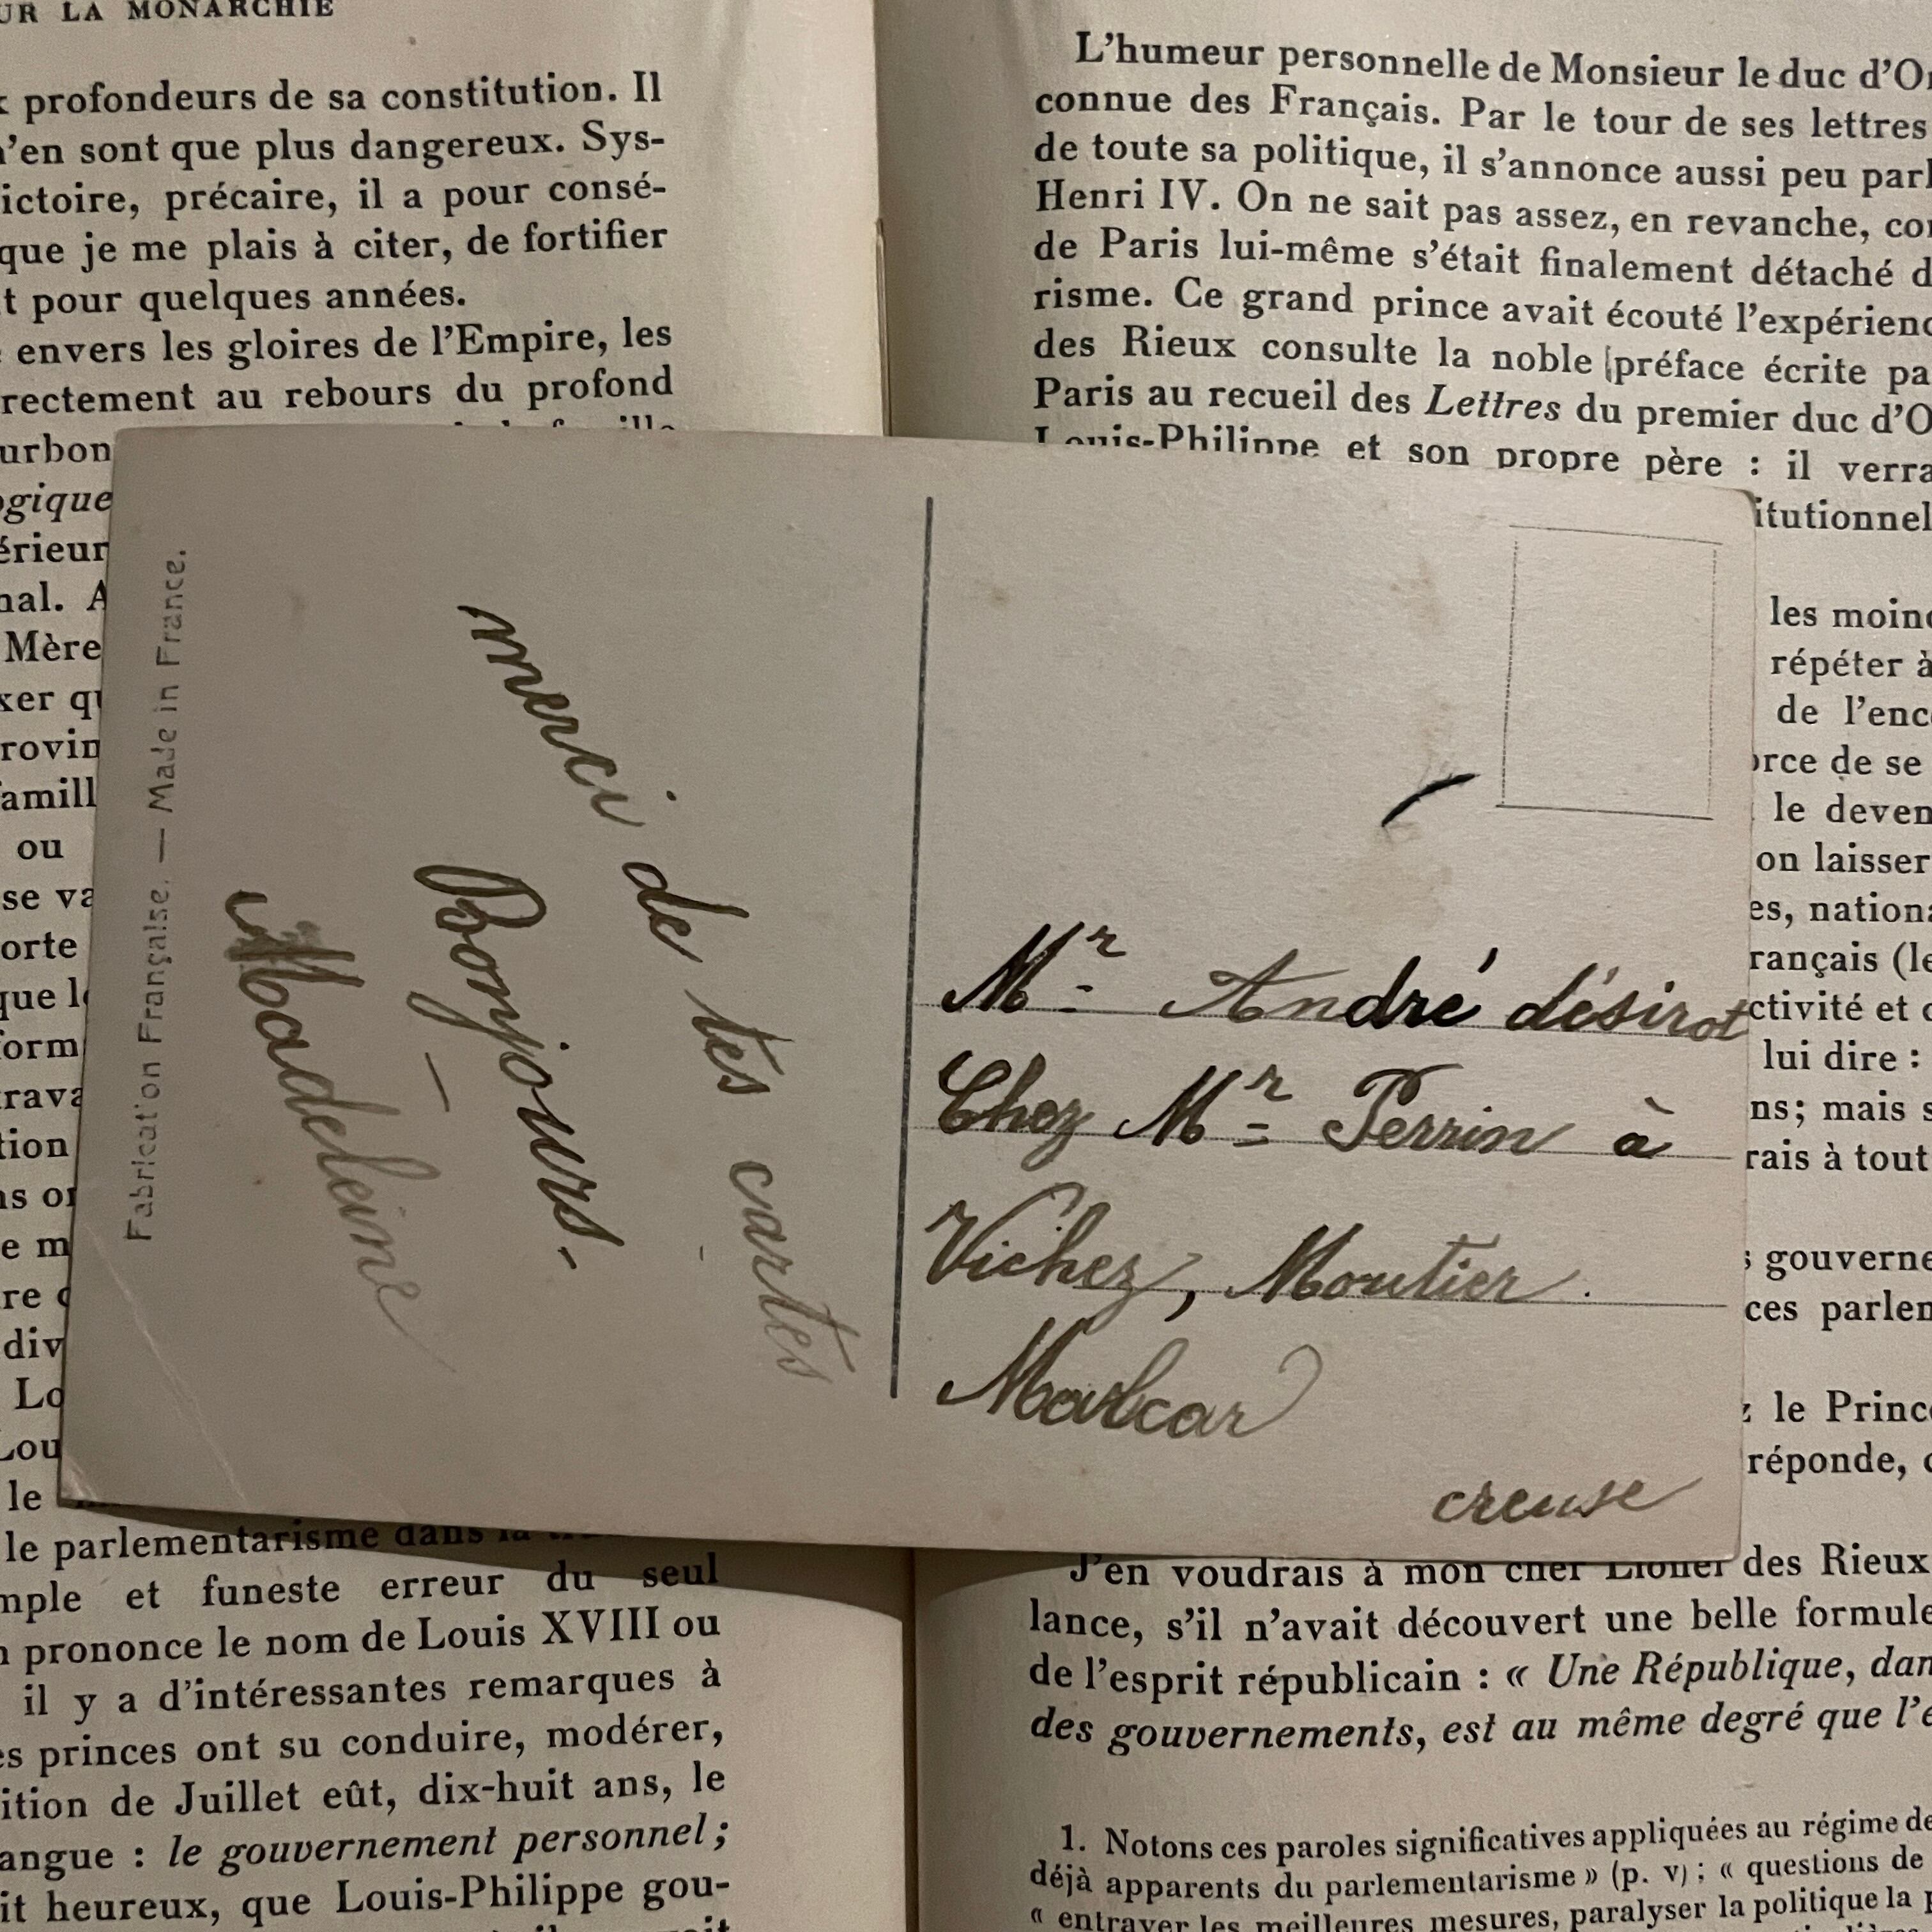 UR LA MONARCHIE
profondeurs de sa constitution. Il
n'en sont que plus dangereux. Sys-
ictoire, précaire, il a pour consé-
que je me plais à citer, de fortifier
t pour quelques années.
envers les gloires de l'Empire, les
rectement au rebours du profond
urbon
ogique
érieur
nal. A
Mère
xer qu
rovin
famill
ou
se va
orte
que l
form
trava
tion
ns or
e m
re d
div
Lo
Lou
le
le parlementarisme dans la
mple et funeste erreur du seul
n prononce le nom de Louis XVIII ou
il y a d'intéressantes remarques à
es princes ont su conduire, modérer,
ition de Juillet eût, dix-huit ans, le
angue : le gouvernement personnel ;
it heureux, que Louis-Philippe gou-
Fabrication Française. — Made in France.
merci de tes cartes
Bonjours.
Madeleine
Mr André désirot
Chez Mr Perrin à
Vichez, Moutier
Malcar
creuse
L'humeur personnelle de Monsieur le duc d'Or
connue des Français. Par le tour de ses lettres
de toute sa politique, il s'annonce aussi peu parl
Henri IV. On ne sait pas assez, en revanche, com
de Paris lui-même s'était finalement détaché d
risme. Ce grand prince avait écouté l'expérienc
des Rieux consulte la noble préface écrite pa
Paris au recueil des Lettres du premier duc d'O
Louis-Philippe et son propre père : il verra
itutionnel
les moind
répéter à
de l'enc
orce de se
le deven
on laisser
es, nationa
rançais (le
ctivité et d
lui dire :
ns ; mais s
rais à tout
gouverne
ces parlem
le Princ
réponde, c
J'en voudrais à mon cher Lionel des Rieux
lance, s'il n'avait découvert une belle formule
de l'esprit républicain : « Une République, dan
des gouvernements, est au même degré que l'e
1. Notons ces paroles significatives appliquées au régime de
déjà apparents du parlementarisme » (p. v) ; « questions de
« entraver les meilleures mesures, paralyser la politique la p